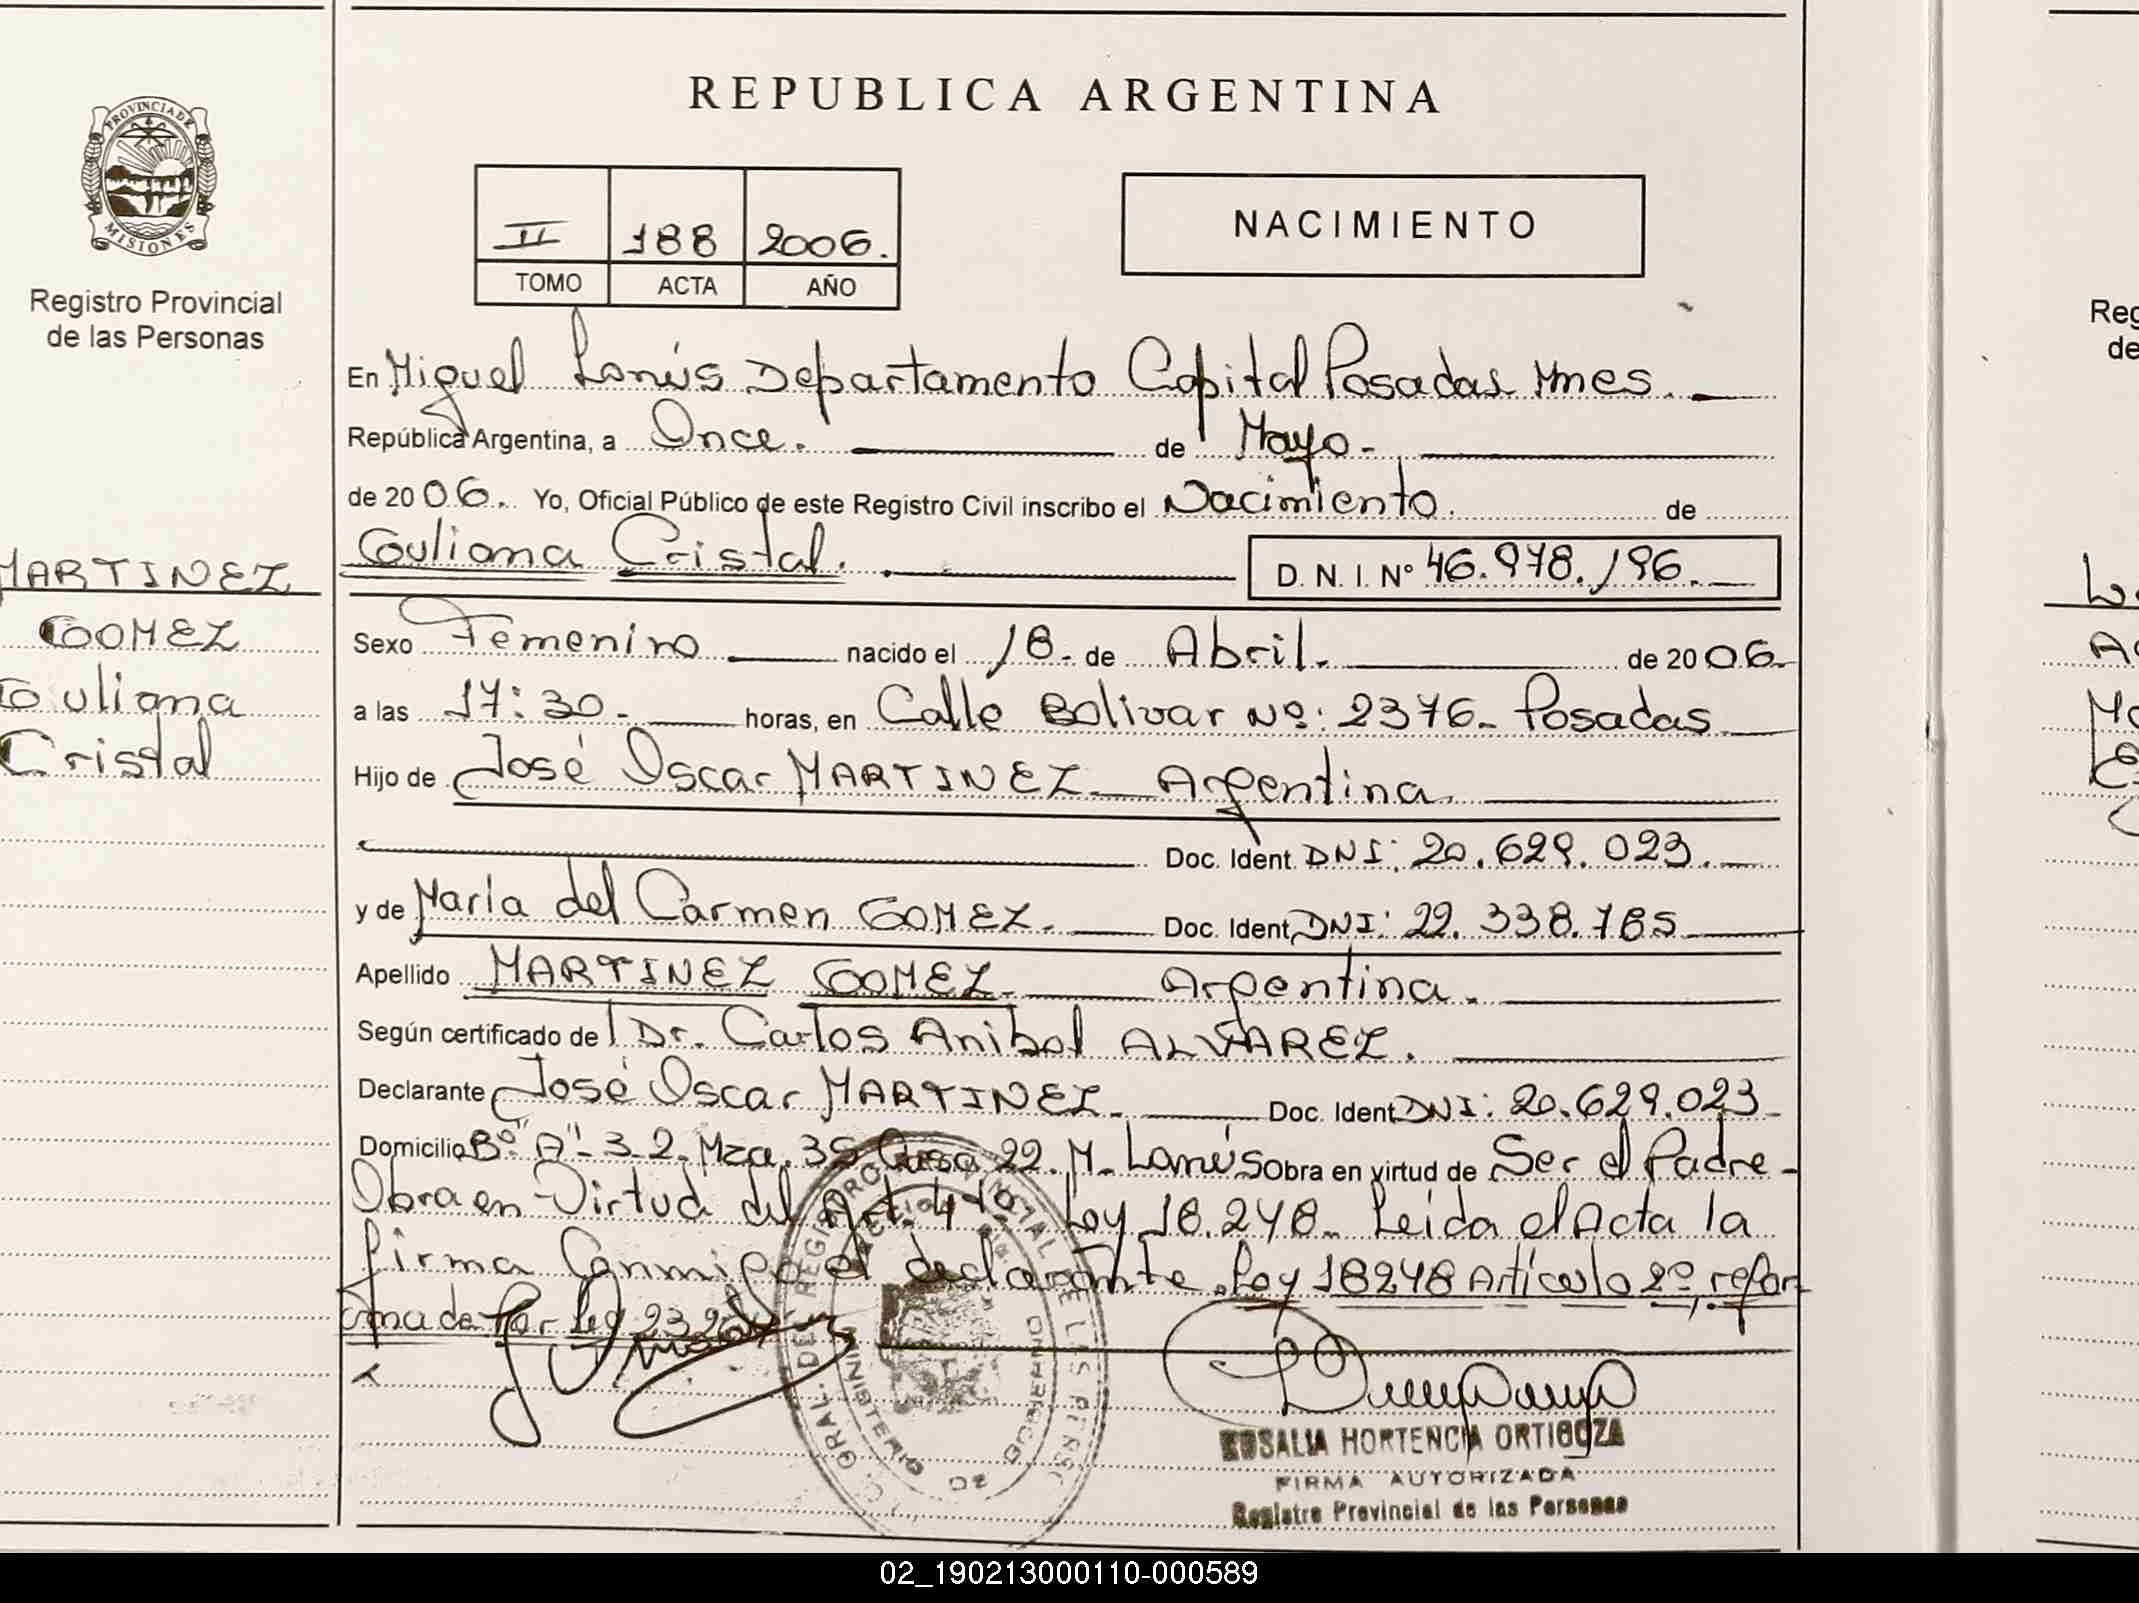 PROVINCIA DE
MISIONES
Registro Provincial
de las Personas
MARTINEZ
GOMEZ
Guliana
Cristal
REPUBLICA ARGENTINA
II 188 2006.
TOMO ACTA AÑO
NACIMIENTO
En Miguel Lanús Departamento Capital Posadas Mnes.
República Argentina, a Once. de Mayo.
de 2006. Yo, Oficial Público de este Registro Civil inscribo el Nacimiento. de
Guliana Cristal. D. N. I. Nº 46.978.196.
Sexo Femenino nacido el 18. de Abril. de 2006.
a las 17:30. horas, en Calle Bolivar Nº: 2376. Posadas
Hijo de José Oscar MARTINEZ Argentina.
Doc. Ident. DNI: 20.629.023.
y de María del Carmen GOMEZ. Doc. Ident. DNI: 22.338.785
Apellido MARTINEZ GOMEZ. Argentina.
Según certificado del Dr. Carlos Anibal ALVAREZ.
Declarante José Oscar MARTINEZ. Doc. Ident. DNI: 20.629.023
Domicilio Bº "A" 3-2. Mza. 35 Casa 22. M. Lanús Obra en virtud de Ser el Padre
Obra en Virtud del Art. Ley 18.248. Leida el Acta la
firma Conmigo el declarante. Ley 18248 Artículo 2º refor
mada Por Ley
ROSALIA HORTENCIA ORTIGOZA
FIRMA AUTORIZADA
Registro Provincial de las Personas
Reg
de
02_190213000110-000589